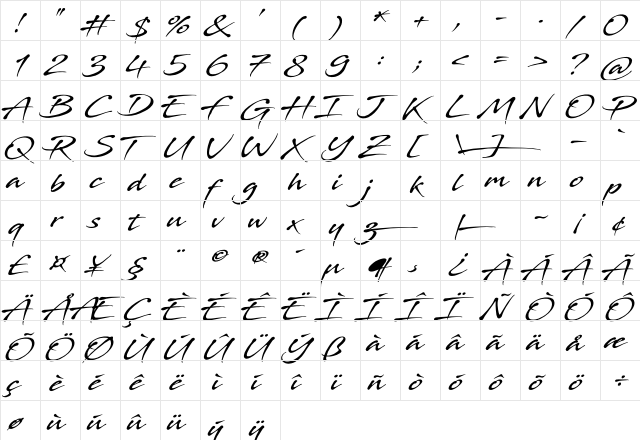 ! " # $ % & ' ( ) * + , - . / 0
1 2 3 4 5 6 7 8 9 : ; < = > ? @
A B C D E F G H I J K L M N O P
Q R S T U V W X Y Z [ \ ] _ `
a b c d e f g h i j k l m n o p
q r s t u v w x y z ~ ¡ ¢
£ ¤ ¥ § ¨ © ® ¯ µ ¶ ¸ ¿ À Á Â Ã
Ä Å Æ Ç È É Ê Ë Ì Í Î Ï Ñ Ò Ó Ô
Õ Ö Ø Ù Ú Û Ü Ý ß à á â ã ä å æ
ç è é ê ë ì í î ï ñ ò ó ô õ ö ÷
ø ù ú û ü ý ÿ